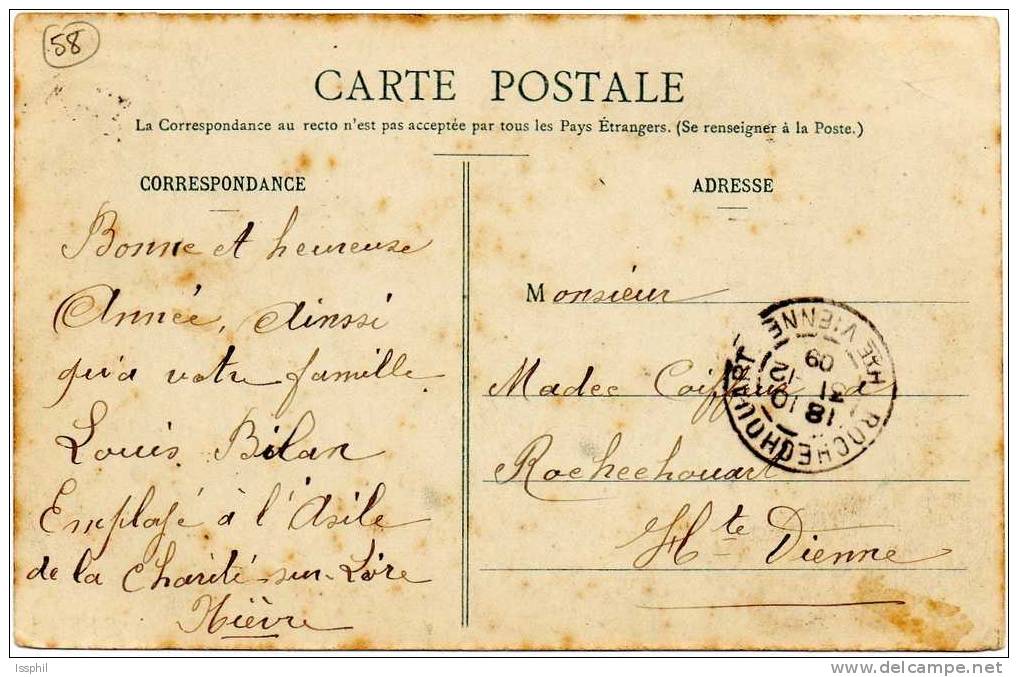 58
CARTE POSTALE
La Correspondance au recto n'est pas acceptée par tous les Pays Étrangers. (Se renseigner à la Poste.)
CORRESPONDANCE
Bonne et heureuse
Année, Ainssi
qu'a votre famille
Louis Bilan
Employé à l'Asile
de la Charité-sur-Loire
Nièvre
ADRESSE
Monsieur
Mades Coiffeur a
Rochechouart
Hte Vienne
ROCHECHOUART
HTE VIENNE
18 10
31
12
09
Issphil
delcampe.net